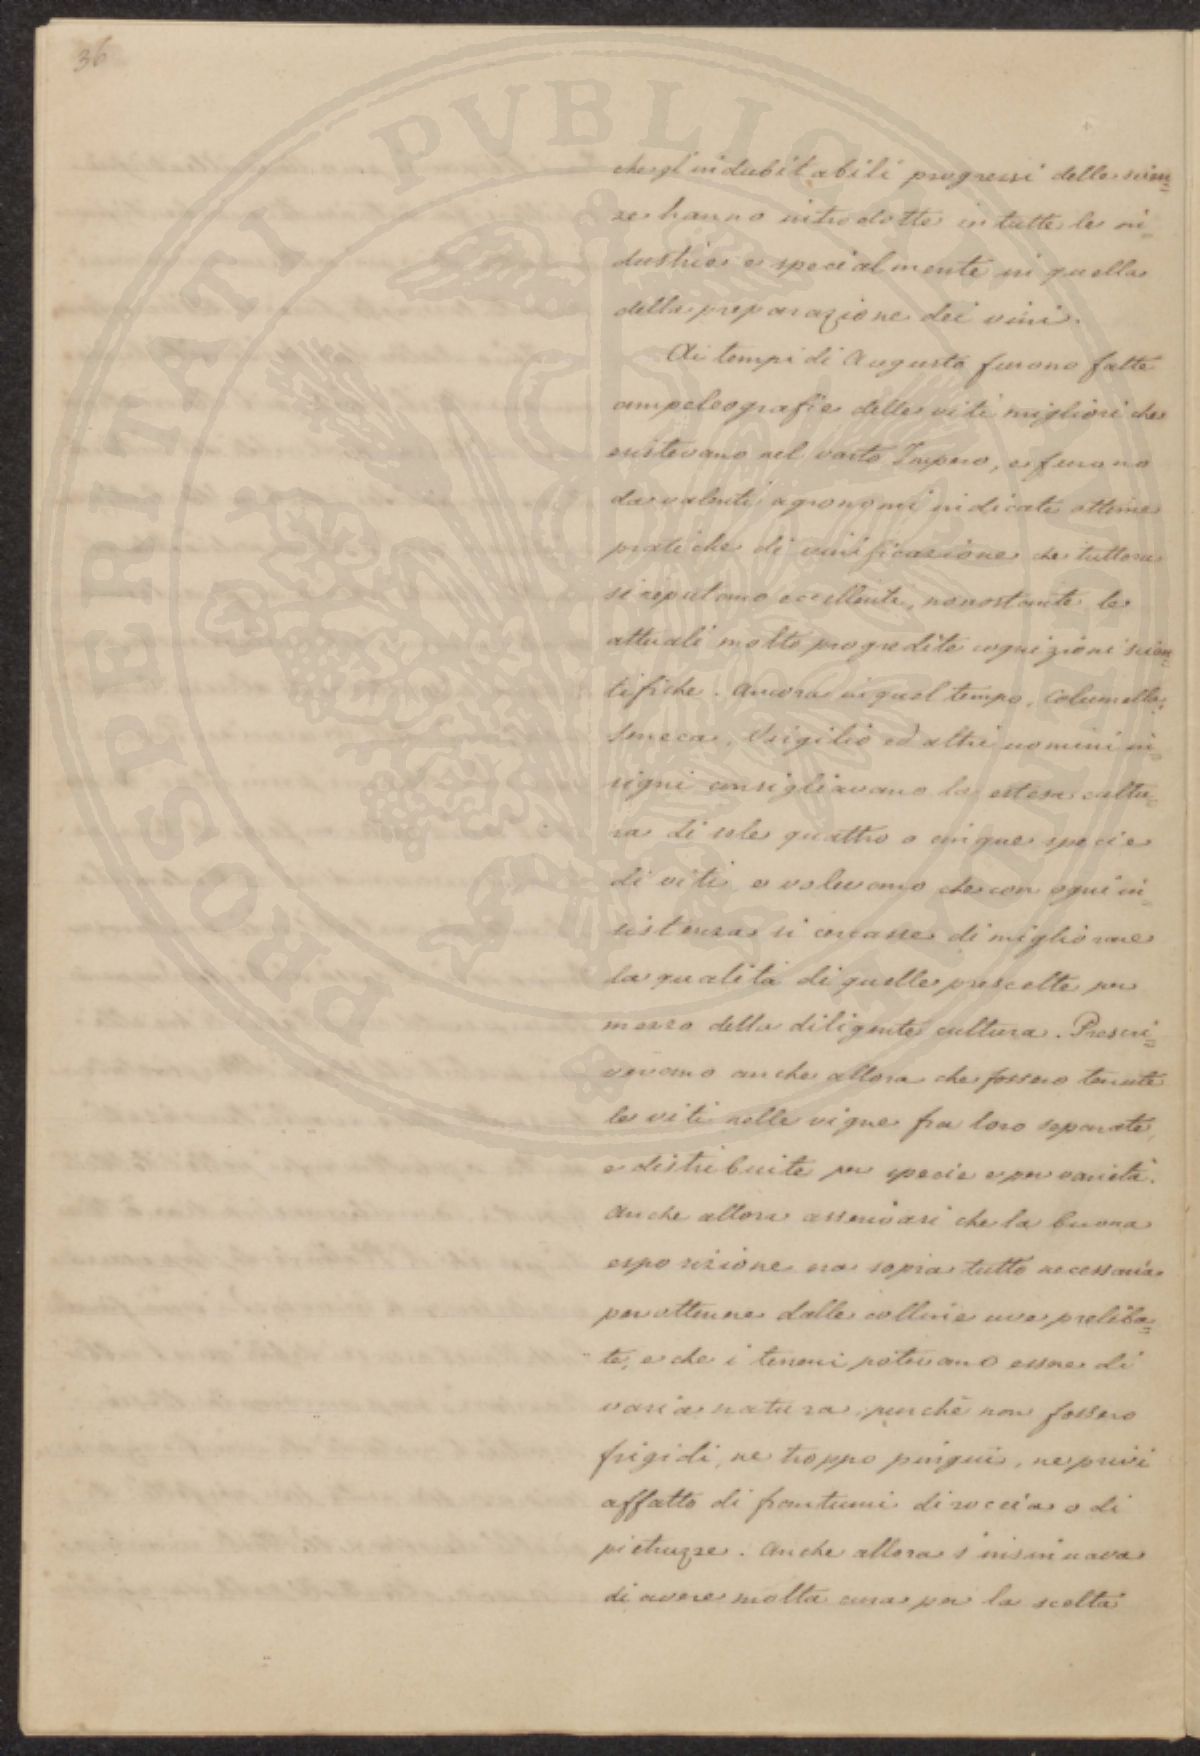 36
PROSPERITATI PUBLICAE
che gl'indubitabili progressi delle scien=
ze hanno introdotte in tutte le in=
dustrie e specialmente in quella
della preparazione dei vini.
Ai tempi di Augusto furono fatte
ampeleografie delle viti migliori che
esistevano nel vasto Impero, e furono
da valenti agronomi indicate ottime
pratiche di vinificazione che tuttora
si reputano eccellenti, nonostante le
attuali molto progredite cognizioni scien=
tifiche. Ancora in quel tempo, Columella,
Seneca, Virgilio ed altri uomini in=
signi consigliavano la estesa cultu=
ra di sole quattro o cinque specie
di viti, e volevano che con ogni in=
sistenza si cercasse di migliorare
la qualità di quelle prescelte per
mezzo della diligente cultura. Prescri=
vevano anche allora che fossero tenute
le viti nelle vigne fra loro separate,
e distribuite per specie e per varietà.
Anche allora asserivasi che la buona
esposizione era sopra tutto necessaria
per ottenere dalle colline uve preliba=
te, e che i terreni potevano essere di
varia natura, purchè non fossero
frigidi, ne troppo pingui, ne privi
affatto di frantumi di roccia o di
pietruzze. Anche allora s'insinuava
di avere molta cura per la scelta